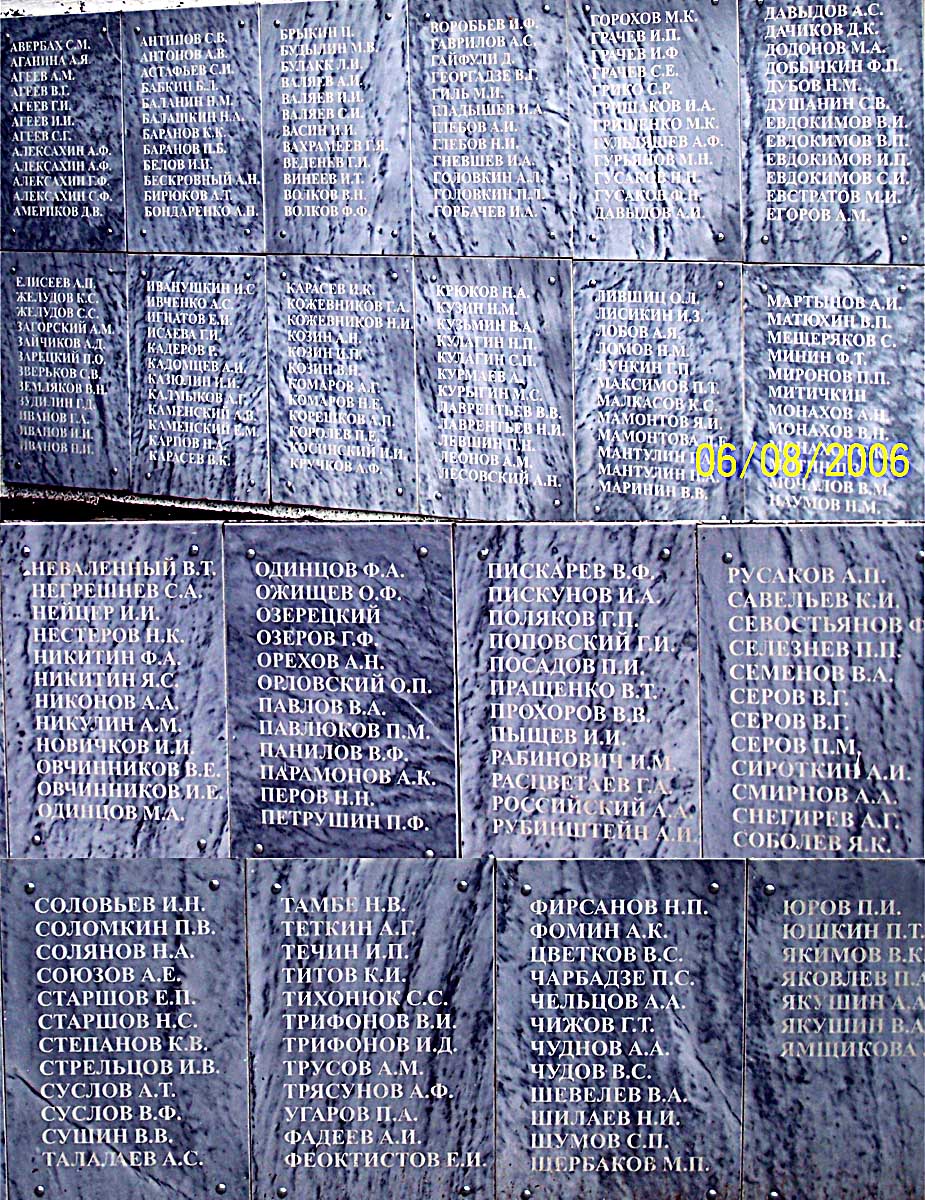 АВЕРБАХ С.М.
АГАНИНА А.Я
АГЕЕВ А.М.
АГЕЕВ В.Г.
АГЕЕВ Г.И.
АГЕЕВ И.И.
АГЕЕВ С.Г.
АЛЕКСАХИН А.Ф.
АЛЕКСАХИН А.Ф.
АЛЕКСАХИН Г.Ф.
АЛЕКСАХИН С.Ф.
АМЕРИКОВ Д.В.
АНТИПОВ С.В.
АНТОНОВ А.В.
АСТАФЬЕВ С.И.
БАБКИН Б.Л.
БАЛАНИН Н.М.
БАЛАШКИН Н.А.
БАРАНОВ К.К.
БАРАНОВ П.Б.
БЕЛОВ И.И.
БЕСКРОВНЫЙ А.Н.
БИРЮКОВ А.Т.
БОНДАРЕНКО А.Н.
БРЫКИН П.
БУДЫЛИН М.В.
БУЛАКК Л.И.
ВАЛЯЕВ А.И.
ВАЛЯЕВ И.И.
ВАЛЯЕВ С.И.
ВАСИН И.И.
ВАХРАМЕЕВ Г.Я.
ВЕДЕНЕВ Г.И.
ВИНЕЕВ И.Т.
ВОЛКОВ В.Н.
ВОЛКОВ Ф.Ф.
ВОРОБЬЕВ И.Ф.
ГАВРИЛОВ А.С.
ГАЙФУЛИ Д.
ГЕОРГАДЗЕ В.Г.
ГИЛЬ М.И.
ГЛАДЫШЕВ И.А.
ГЛЕБОВ А.И.
ГЛЕБОВ Н.И.
ГНЕВШЕВ И.А.
ГОЛОВКИН А.Л.
ГОЛОВКИН П.Л.
ГОРБАЧЕВ И.А.
ГОРОХОВ М.К.
ГРАЧЕВ И.П.
ГРАЧЕВ И.Ф
ГРАЧЕВ С.Е.
ГРИКО С.Р.
ГРИШАКОВ И.А.
ГРИЩЕНКО М.К.
ГУЛЬДЯШЕВ А.Ф.
ГУРЬЯНОВ М.Н.
ГУСАКОВ Н.Н.
ГУСАКОВ Ф.Н.
ДАВЫДОВ А.И.
ДАВЫДОВ А.С.
ДАЧИКОВ Д.К.
ДОДОНОВ М.А.
ДОБЫЧКИН Ф.П.
ДУБОВ Н.М.
ДУШАНИН С.В.
ЕВДОКИМОВ В.И.
ЕВДОКИМОВ В.П.
ЕВДОКИМОВ И.П.
ЕВДОКИМОВ С.И.
ЕВСТРАТОВ М.И.
ЕГОРОВ А.М.
ЕЛИСЕЕВ А.П.
ЖЕЛУДОВ К.С.
ЖЕЛУДОВ С.С.
ЗАГОРСКИЙ А.М.
ЗАЙЧИКОВ А.Д.
ЗАРЕЦКИЙ П.О.
ЗВЕРЬКОВ С.В.
ЗЕМЛЯКОВ В.Н.
ЗУДИЛИН Г.Д.
ИВАНОВ Г.А.
ИВАНОВ И.И.
ИВАНОВ Н.И.
ИВАНУШКИН И.С
ИВЧЕНКО А.С
ИГНАТОВ Е.И.
ИСАЕВА Г.И.
КАДЕРОВ Р.
КАДОМЦЕВ А.И.
КАЗЮЛИН И.И.
КАЛМЫКОВ А.Г.
КАМЕНСКИЙ А.В.
КАМЕНСКИЙ Е.М.
КАРПОВ Н.А.
КАРАСЕВ В.К.
КАРАСЕВ И.К.
КОЖЕВНИКОВ Г.А.
КОЖЕВНИКОВ Н.И.
КОЗИН А.Н.
КОЗИН И.П.
КОЗИН В.Н.
КОМАРОВ А.Г.
КОМАРОВ Н.Е.
КОРЕШКОВ А.П.
КОРОЛЕВ П.Е.
КОСИНСКИЙ И.И.
КРУЧКОВ А.Ф.
КРЮКОВ Н.А.
КУЗИН Н.М.
КУЗЬМИН В.А.
КУЛАГИН Н.П.
КУЛАГИН С.П.
КУРМАЕВ А.
КУРЫГИН М.С.
ЛАВРЕНТЬЕВ В.В.
ЛАВРЕНТЬЕВ Н.И.
ЛЕВШИН П.Н.
ЛЕОНОВ А.М.
ЛЕСОВСКИЙ А.Н.
ЛИВШИЦ О.Л.
ЛИСИКИН И.З.
ЛОБОВ А.Я.
ЛОМОВ Н.М.
ЛУНКИН Г.П.
МАКСИМОВ П.Т.
МАЛКАСОВ К.С.
МАМОНТОВ Я.И.
МАМОНТОВА
МАНТУЛИН
МАНТУЛИН
МАРИНИН В.В.
МАРТЫНОВ А.И.
МАТЮХИН В.П.
МЕЩЕРЯКОВ С.
МИНИН Ф.Т.
МИРОНОВ П.П.
МИТИЧКИН
МОНАХОВ А.Н.
МОНАХОВ В.Н.
МОЧАЛОВ В.М.
НАУМОВ Н.М.
06/08/2006
НЕВАЛЕННЫЙ В.Т.
НЕГРЕШНЕВ С.А.
НЕЙЦЕР И.И.
НЕСТЕРОВ Н.К.
НИКИТИН Ф.А.
НИКИТИН Я.С.
НИКОНОВ А.А.
НИКУЛИН А.М.
НОВИЧКОВ И.И.
ОВЧИННИКОВ В.Е.
ОВЧИННИКОВ И.Е.
ОДИНЦОВ М.А.
ОДИНЦОВ Ф.А.
ОЖИЩЕВ О.Ф.
ОЗЕРЕЦКИЙ
ОЗЕРОВ Г.Ф.
ОРЕХОВ А.Н.
ОРЛОВСКИЙ О.П.
ПАВЛОВ В.А.
ПАВЛЮКОВ П.М.
ПАНИЛОВ В.Ф.
ПАРАМОНОВ А.К.
ПЕРОВ Н.Н.
ПЕТРУШИН П.Ф.
ПИСКАРЕВ В.Ф.
ПИСКУНОВ И.А.
ПОЛЯКОВ Г.П.
ПОПОВСКИЙ Г.И.
ПОСАДОВ П.И.
ПРАЩЕНКО В.Т.
ПРОХОРОВ В.В.
ПЫЩЕВ И.И.
РАБИНОВИЧ И.М.
РАСЦВЕТАЕВ Г.А.
РОССИЙСКИЙ А.А.
РУБИНШТЕЙН А.И.
РУСАКОВ А.П.
САВЕЛЬЕВ К.И.
СЕВОСТЬЯНОВ Ф
СЕЛЕЗНЕВ П.П.
СЕМЕНОВ В.А.
СЕРОВ В.Г.
СЕРОВ В.Г.
СЕРОВ П.М.
СИРОТКИН А.И.
СМИРНОВ А.А.
СНЕГИРЕВ А.Г.
СОБОЛЕВ Я.К.
СОЛОВЬЕВ И.Н.
СОЛОМКИН П.В.
СОЛЯНОВ Н.А.
СОЮЗОВ А.Е.
СТАРШОВ Е.П.
СТАРШОВ Н.С.
СТЕПАНОВ К.В.
СТРЕЛЬЦОВ И.В.
СУСЛОВ А.Т.
СУСЛОВ В.Ф.
СУШИН В.В.
ТАЛАЛАЕВ А.С.
ТАМБЕ Н.В.
ТЕТКИН А.Г.
ТЕЧИН И.П.
ТИТОВ К.И.
ТИХОНЮК С.С.
ТРИФОНОВ В.И.
ТРИФОНОВ И.Д.
ТРУСОВ А.М.
ТРЯСУНОВ А.Ф.
УГАРОВ П.А.
ФАДЕЕВ А.И.
ФЕОКТИСТОВ Е.И.
ФИРСАНОВ Н.П.
ФОМИН А.К.
ЦВЕТКОВ В.С.
ЧАРБАДЗЕ П.С.
ЧЕЛЬЦОВ А.А.
ЧИЖОВ Г.Т.
ЧУДНОВ А.А.
ЧУДОВ В.С.
ШЕВЕЛЕВ В.А.
ШИЛАЕВ Н.И.
ШУМОВ С.П.
ЩЕРБАКОВ М.П.
ЮРОВ П.И.
ЮШКИН П.Т.
ЯКИМОВ В.К
ЯКОВЛЕВ П.А
ЯКУШИН А.А
ЯКУШИН В.А
ЯМЩИКОВА